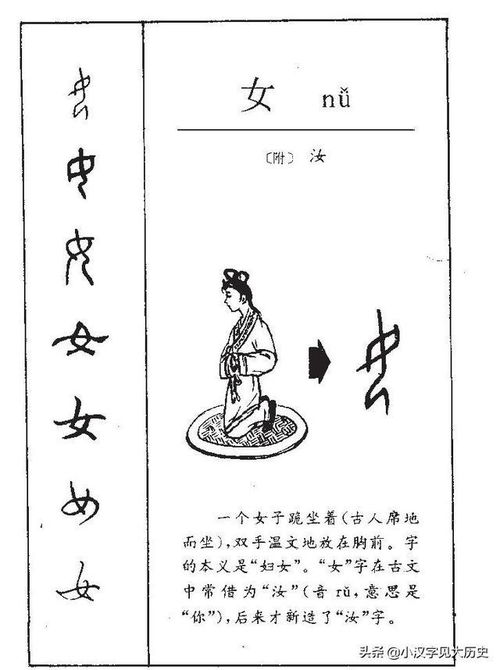 女 nǚ
〔附〕 汝
一个女子跪坐着(古人席地
而坐),双手温文地放在胸前。字
的本义是“妇女”。“女”字在古文
中常借为“汝”(音 rǔ,意思是
“你”),后来才新造了“汝”字。
女
女
女
女
头条 @小汉字见大历史